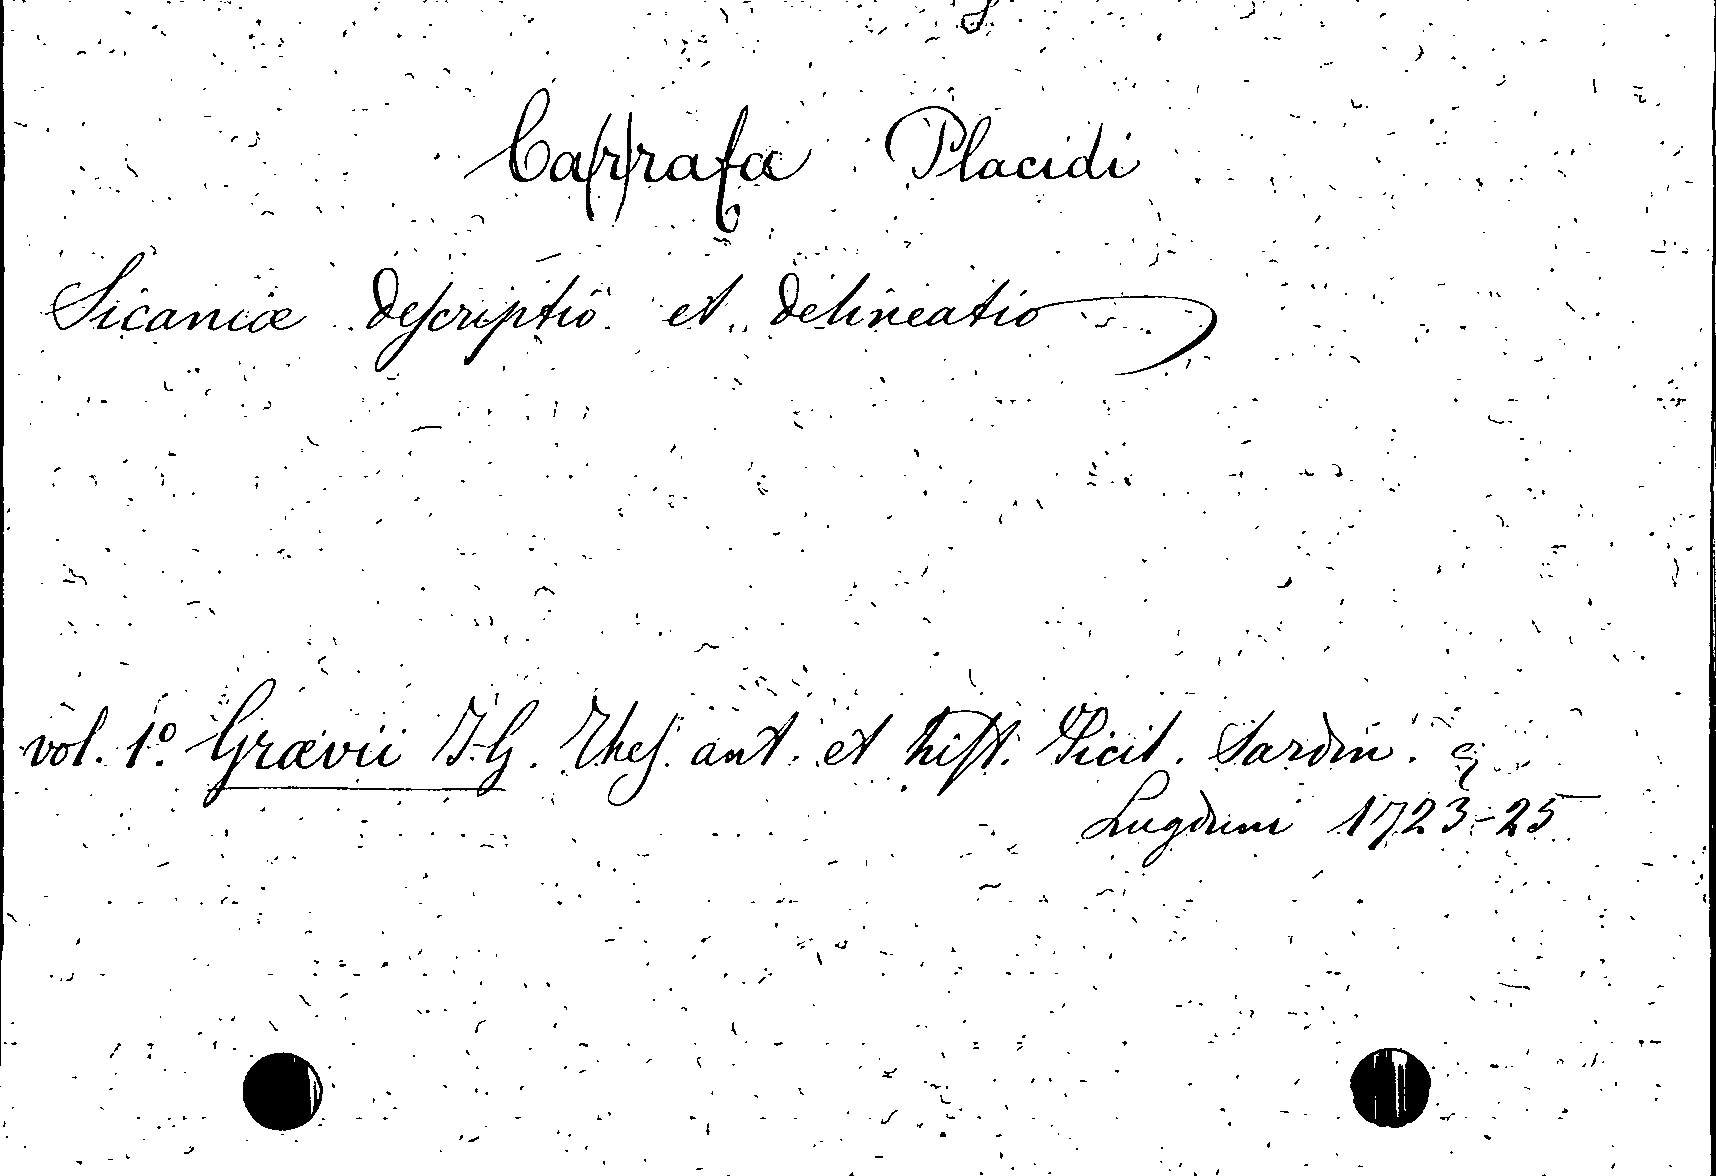 Ca(r)rafa Placidi
Sicaniæ descriptio et delineatio
vol. 1º Grævii I. G. Thes. ant. et hist. Sicil. Sardin.
Lugduni 1723-25